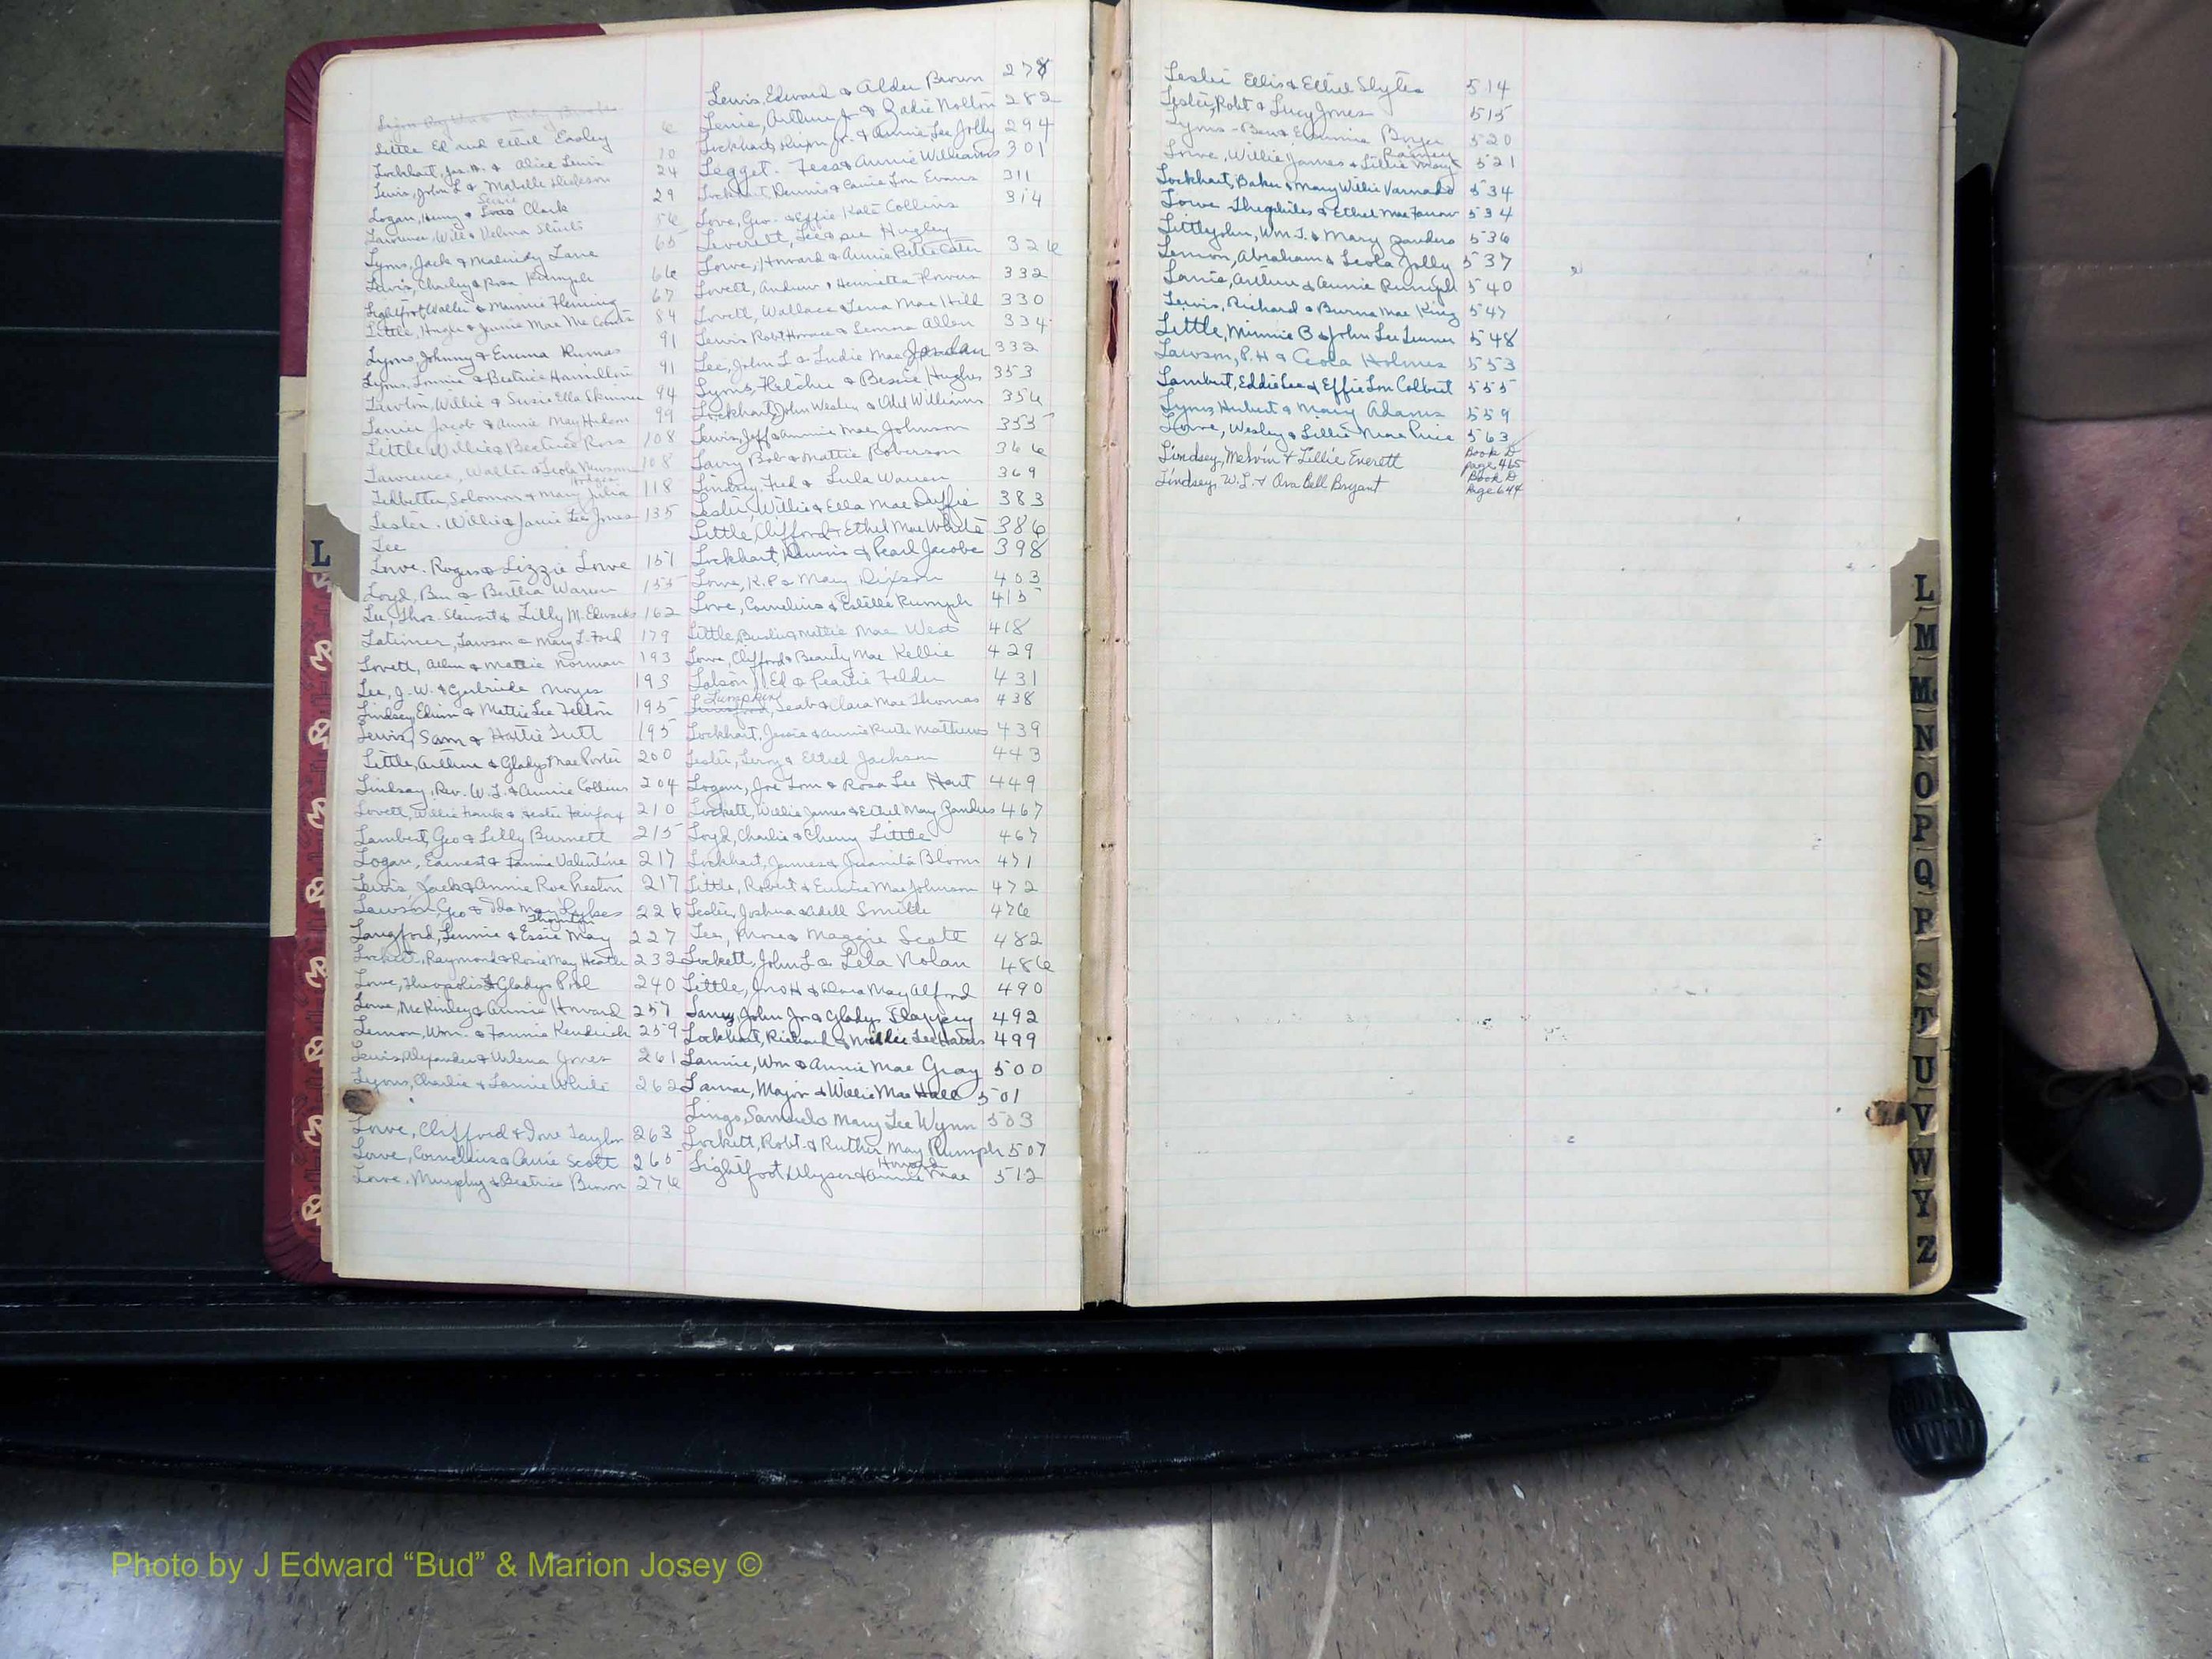 Little Ed and Ethel Easley 6
Lockhart, Jas. H. & Alice Lewis 10
Lewis, John L & Mabelle 24
Logan, Henry & Clark 29
Lawrence, Will & Velma 56
Lyons, Jack & Lane 65
Davis, Charley & Rosa Rumph 66
Lightfoot, Walter & Minnie Fleming 67
Little, & Jennie Mae 84
Lyons, Johnny & Emma 91
Lyons, Lonnie & Beatrice Hamilton 91
Lawton, Willie & Susie Ella Skinner 94
Lanier Jacob & Annie May 99
Little Willie & Beatrice Ross 108
Lawrence, Walter & Leola 108
Ledbetter, Solomon & Mary Julia 118
Lester. Willie & Janie Lee Jones 135
Lee
Lowe. Roger & Lizzie Lowe 151
Loyd, Ben & Bertha Warren 155
Lee, Thos. Stewart & Lilly M. Edwards 162
Latimer, Lawson & Mary L. Ford 179
Lovett, Allen & Mattie Norman 193
Lee, J. W. & Gertrude Noyes 193
Lindsey, Edwin & Mattie Lee Felton 195
Lewis, Sam & Hattie Tutt 195
Little, Arthur & Gladys Mae Porter 200
Lindsay, Rev. W. L. & Annie Collins 204
Lovett, Willie Frank & 210
Lambert, Geo & Lilly Burnett 215
Logan, Earnest & Fannie Valentine 217
Lewis Jack & Annie Roe Heston 217
Lawson, Geo & Ida May Lykes 226
Thornton
Langford, Lennie & Essie May 227
Lockett, Raymond & Rosie May Heath 232
Lowe, & Gladys 240
Lowe, McKinley & Annie Howard 257
Lemon, Wm. & Fannie Kendrick 259
Lewis, Alexander & Jones 261
Lyons, Charlie & White 262
Lowe, Clifford & Taylor 263
Lowe, Cornelius & Annie Scott 265
Lowe, Murphy & Beatrice Brown 276
Lewis, Edward & Alder Brown 278
Arthur Jr & Zadie 282
Lockhart, Jr. & Annie Lee Jolly 294
Legget. & Annie Williams 301
Lockhart, Dennis & Carrie Lou Evans 311
Love, Geo. & Effie Kate Collins 314
Leverett, Lee & Sue Hugley
Lowe, Howard & Annie Bette Cater 326
Lovett, Andrew & Henrietta Flowers 332
Lovett, Wallace & Lena Mae Hill 330
Lewis Robt Horace & Lenora Allen 334
Lee, John L & Ludie Mae Jordan 332
Lyons, & Bessie Hughes 353
Lockhart, John Wesley & Odel Williams 354
Lewis, Jeff & Annie Mae Johnson 355
Bob & Mattie Roberson 366
Lindsey, Fred & Lula Warren 369
Leslie, Willie & Ella Mae Duffie 383
Little, Clifford & Ethel Mae White 386
Lockhart, Dennis & Pearl Jacobs 398
Lowe, K. P & Mary Dixson 403
Love, Cornelius & Estelle Rumph 415
Little, & Mattie Mae West 418
Lowe, Clifford & Beauty Mae Kellie 429
Ed & Pearlie Felder 431
Lumpkin
& Clara Mae Thomas 438
Lockhart, Jessie & Annie Ruth Mathews 439
Leslie, Leroy & Ethel Jackson 443
Logan, Joe Tom & Rosa Lee Hart 449
Lockett, Willie James & Ethel May Zanders 467
Loyd, Charlie & Cherry Little 467
Lockhart, James & Juanita Bloom 471
Little, Robert & Eunice Mae Johnson 472
Leslie, Joshua & Adell Smith 476
Lee, & Maggie Scott 482
Lockett, John L & Lela Nolan 486
Little, Jno H & Dora May Alford 490
John Jr & Gladys Slappey 492
Lockhart, Richard & Willie Lee 499
Lannie, Wm & Annie Mae Gray 500
Lamar, Major & Willie Mae Hall 501
Lingo, Samuel & Mary Lee Wynn 503
Lockett, Robt. & Ruther May Rumph 507
Howard
Lightfoot, Ulyses & Annie Mae 512
Leslie Ellis & Ethel Slyter 514
Lester, Robt & Lucy Jones 515
Lyons - Ben & Eunnnie 520
Raines
Lowe, Willie James & Lillie Mary 521
Lockhart, Baker & Mary Willie Varnado 534
Lowe Theophiles & Ethel Mae 534
Littlejohn, Wm. T. & Mary Zanders 536
Lemon, Abraham & Leola Jolly 537
Arthur & Annie Rumph 540
Lewis, Richard & Burma Mae King 547
Little, Minnie B & John Lee Turner 548
Lawson, P. H & Ceola Holmes 553
Lambert, Eddie Lee & Effie Lou Colbert 555
Lyons, Hubert & Mary Adams 559
Lowe, Wesley & Lillie Mae Price 563
Lindsey, Melvin & Lillie Everett Book D page 465
Lindsey, W. L. & Ora Bell Bryant Book D Page 644
L
L
M
Mc
N
O
P
Q
R
S
T
U
V
W
Y
Z
Photo by J Edward “Bud” & Marion Josey ©